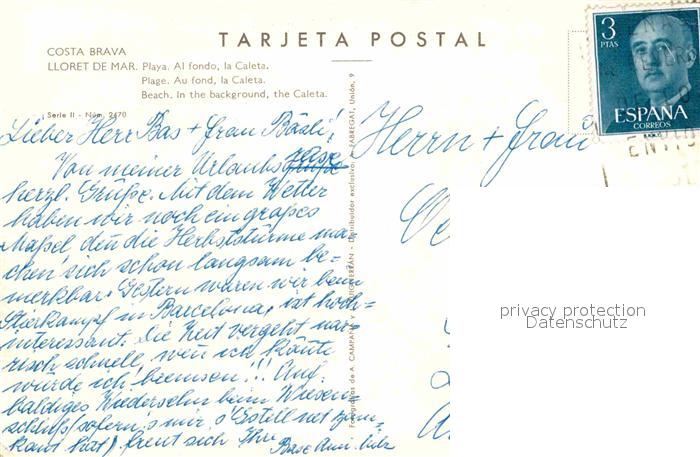 TARJETA POSTAL
COSTA BRAVA
LLORET DE MAR. Playa. Al fondo, la Caleta.
Plage. Au fond, la Caleta.
Beach. In the background, the Caleta.
Serie II - Núm. 2470
Lieber Herr Bas + Frau Bäsli!
Von meiner Urlaubsreise
herzl. Grüße. Mit dem Wetter
haben wir noch ein großes
Maßel denn die Herbststürme ma-
chen sich schon langsam be-
merkbar. Gestern waren wir beim
Stierkampf in Barcelona, ist hoch-
interessant. Die Zeit vergeht när-
risch schnell, wen ich könnte
würde ich bremsen!!! Auf
baldiges Wiedersehn beim Wiesen
schluß (sofern's mir, s'
net zam-
kaut hat). freut sich Ihre
Fotografías de A. CAMPAÑÁ
Distribuidor exclusivo: FABREGAT, Unión, 9
Herrn + Frau
3
PTAS
ESPAÑA
CORREOS
privacy protection
Datenschutz